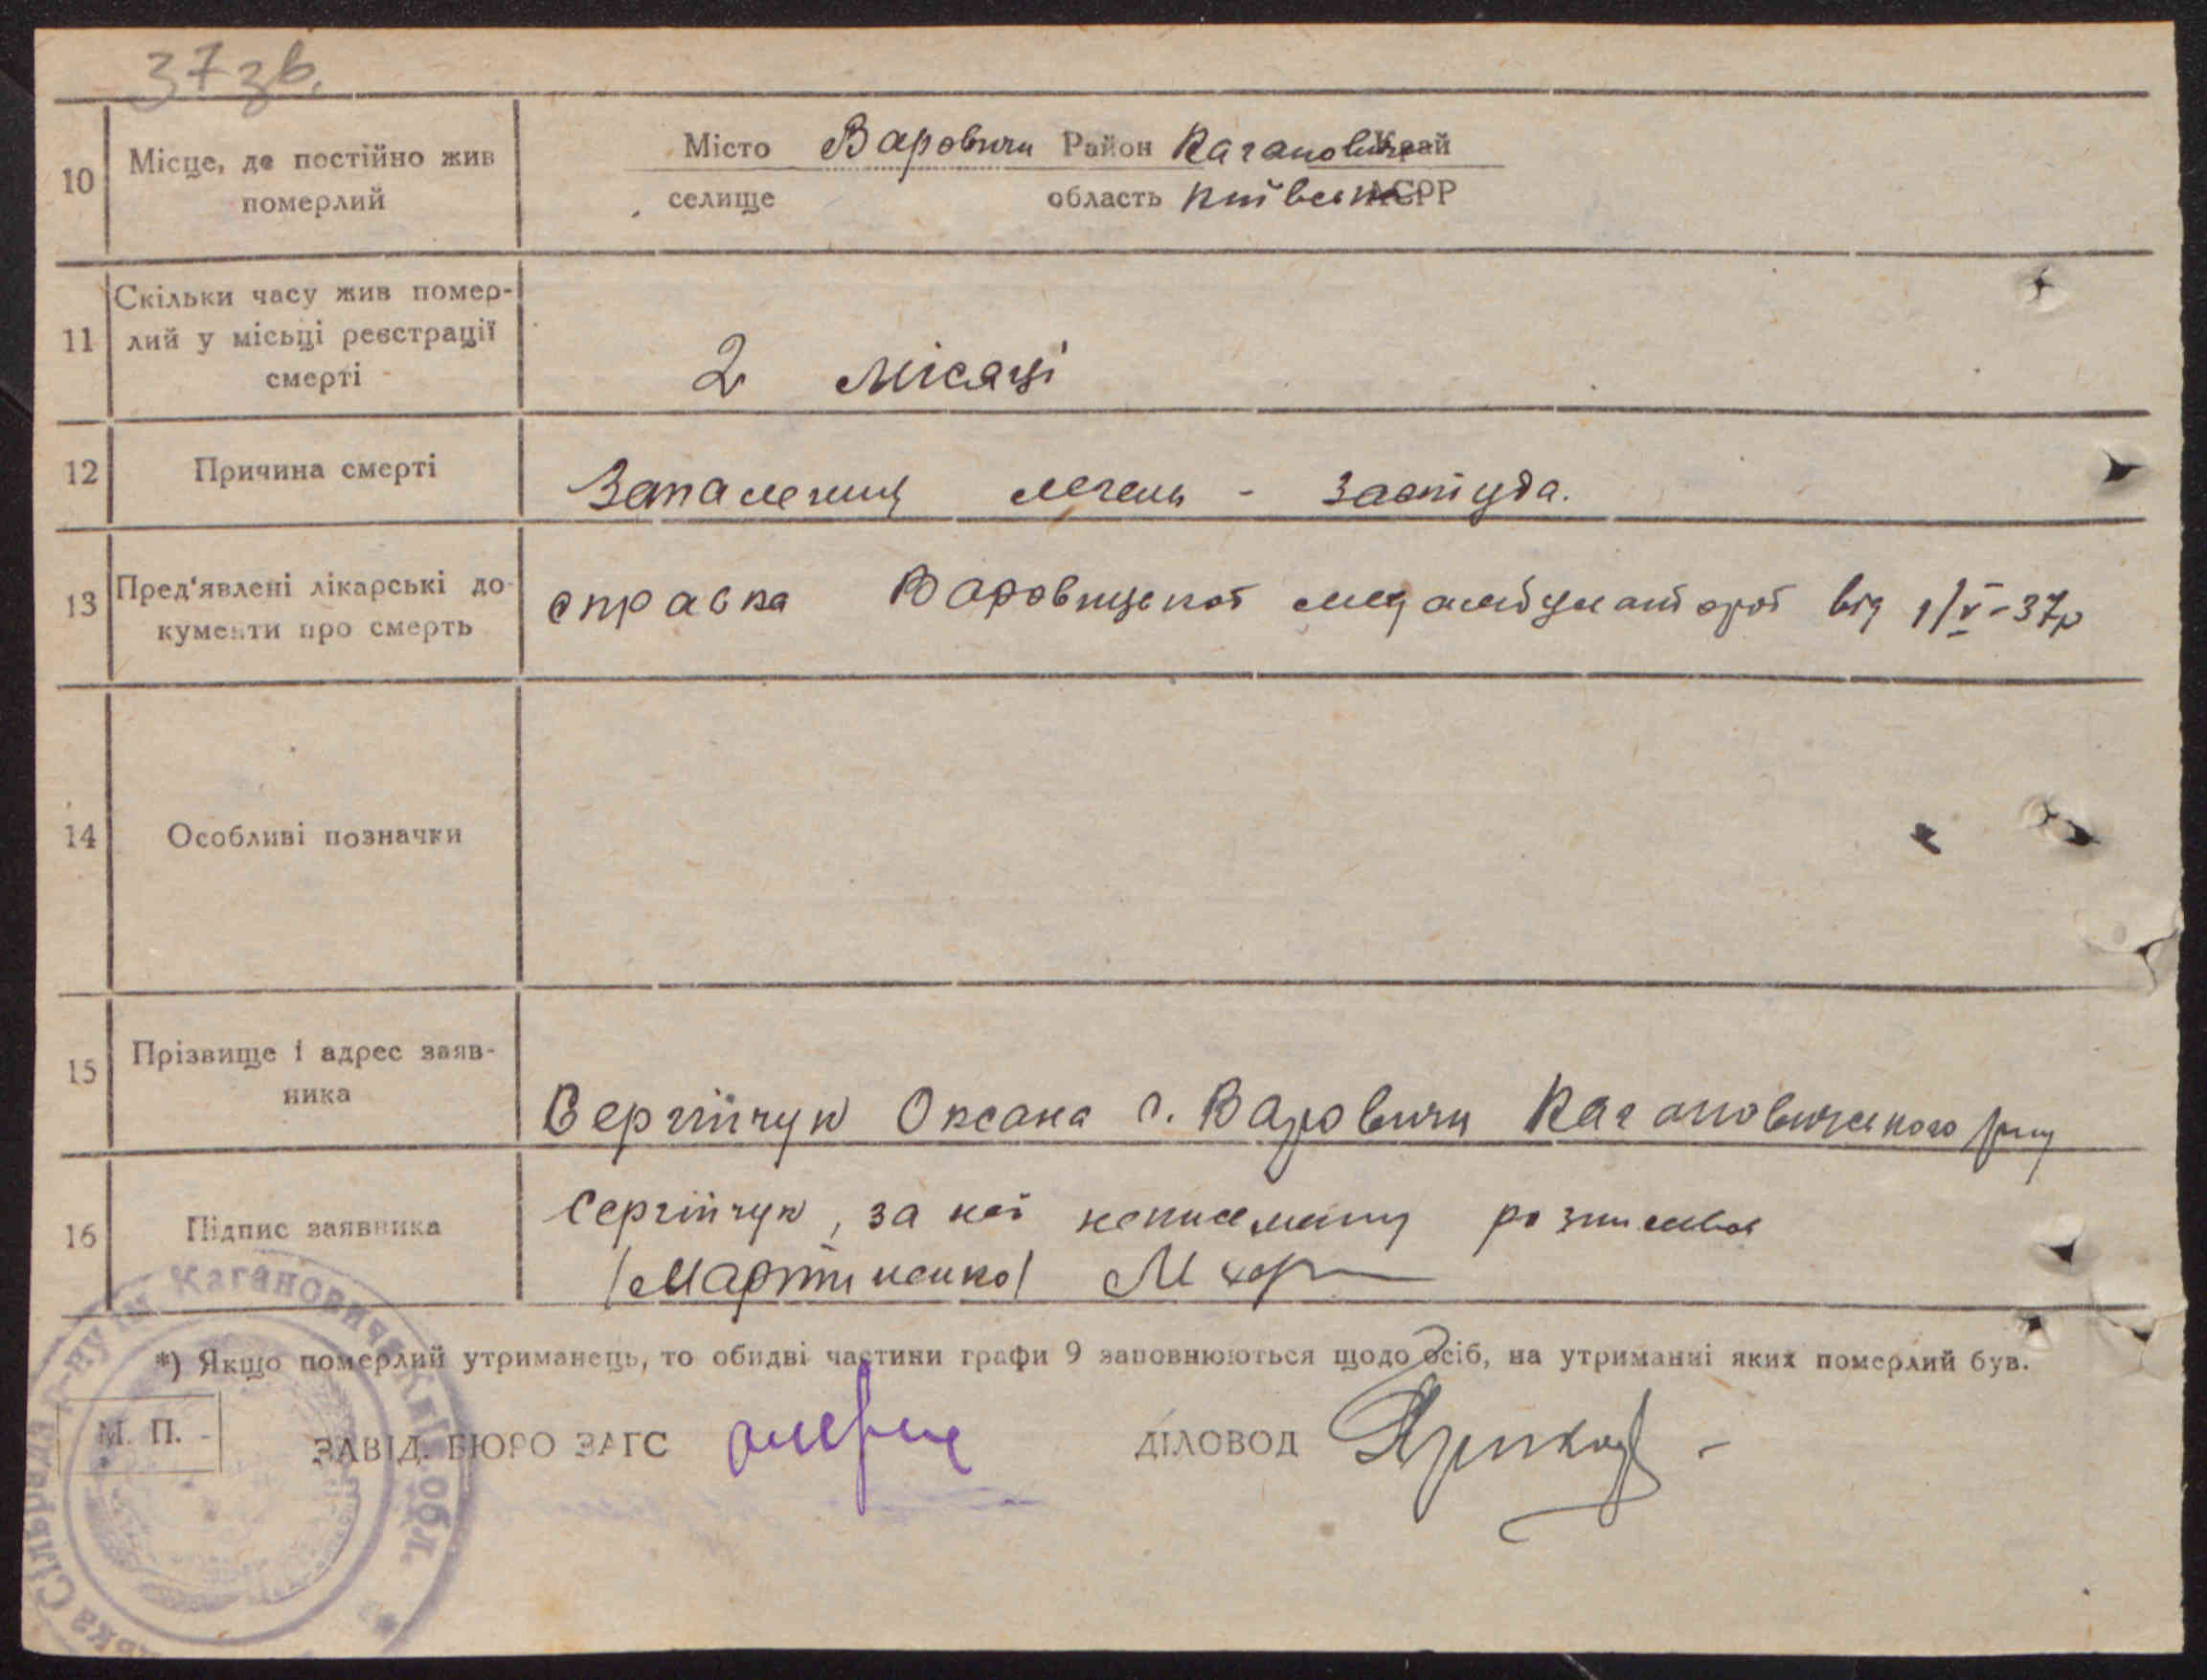 37 зв.
10 Місце, де постійно жив померлий
Місто Варовичи Район Каганович Край
селище область Київськ АСРР
11 Скільки часу жив помер-
лий у місьці реєстрації
смерті
2 місяці
12 Причина смерті
Запалення легень - застуда.
13 Пред'явлені лікарські до-
кументи про смерть
справка Варовицької медамбулаторої від 1/V-37р
14 Особливі позначки
15 Прізвище і адрес заяв-
ника
Сергійчук Оксана с. Варовичи Кагановицького р-ну
16 Підпис заявника
Сергійчук, за неї неписьмену
/Мартиненко/
*) Якщо померлий утриманець, то обидві частини графи 9 заповнюються щодо осіб, на утриманні яких померлий був.
М. П. ЗАВІД. БЮРО ЗАГС ДІЛОВОД
Сільрада р-ну ім Кагановича Київ. обл.